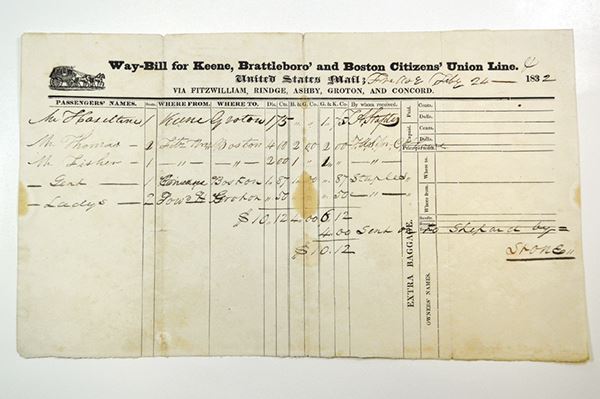 Way-Bill for Keene, Brattleboro' and Boston Citizens' Union Line.
United States Mail, Feby 24 1832
VIA FITZWILLIAM, RINDGE, ASHBY, GROTON, AND CONCORD.
PASSENGERS' NAMES. Seats. WHERE FROM. WHERE TO. Dls. Cts. B. & G. Co. G. & K. Co. By whom received.
Mr Haselton 1 Keene Groton 1 75 " " 1 75
Mr Thomas 1 Boston 4 00 2 00 2 00
Mr Fisher 1 " " 2 00 1 " 1 " "
Gent Concord Boston 1 87 1 87 Staples
Ladys 2 Groton " 50 " " 50 "
$10.12 4.00 6.12
4.00 Sent on to Shepard by
$10.12 Stone
EXTRA BAGGAGE.
Paid. Cents. Dolls.
Unpaid. Cents. Dolls.
Where to.
Where from.
OWNERS' NAMES.